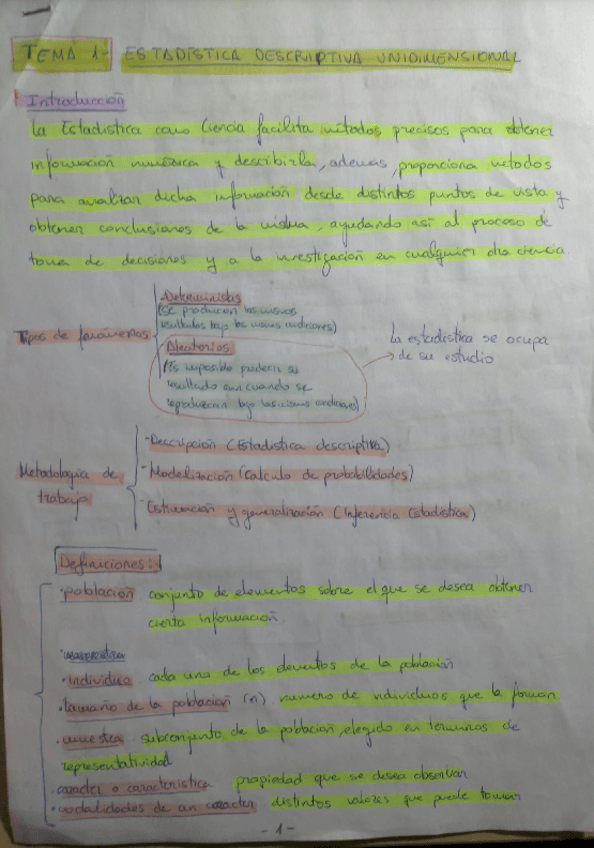 TEMA 1- ESTADÍSTICA DESCRIPTIVA UNIDIMENSIONAL
Introducción
La Estadística como Ciencia facilita métodos precisos para obtener
información numérica y describirla, además, proporciona metodos
para analizar dicha información desde distintos puntos de vista y
obtener conclusiones de la misma, ayudando así al proceso de
toma de decisiones y a la investigación en cualquier otra ciencia.
Tipos de fenómenos
-Deterministas
(se producen los mismos
resultados bajo las mismas condiciones)
Aleatorios
(Es imposible predecir su
resultado aun cuando se
reproduzcan bajo las mismas condiciones)
La estadística se ocupa
de su estudio
Metodología de
trabajo
·Descripción (Estadistica descriptiva)
·Modelización (Calculo de probabilidades)
·Estimación y generalización (Inferencia Estadística)
Definiciones:
·población conjunto de elementos sobre el que se desea obtener
cierta información.
·individuo cada uno de los elementos de la población
·tamaño de la población (n) numero de individuos que la forman.
·muestra subconjunto de la población, elegido en términos de
representatividad
·caracter o característica propiedad que se desea observar
·modalidades de un caracter distintos valores que puede tomar
-1-